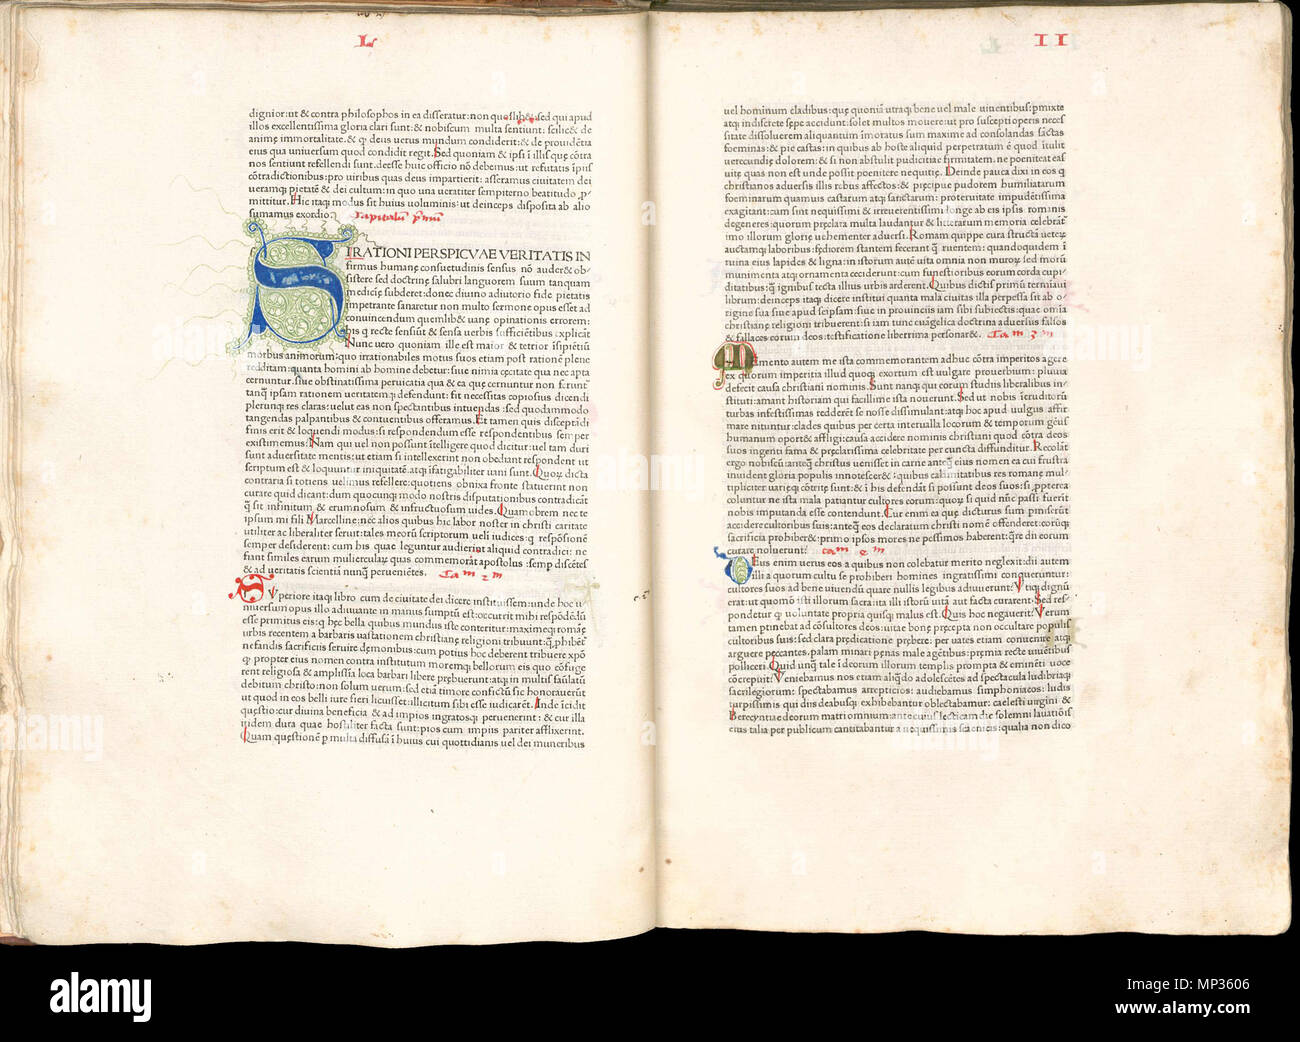 L
digniorː ut & contra philosophos in ea disseraturː non quoslib&ː sed qui apud
illos excellentissima gloria clari suntː & nobiscum multa sentiuntː scilic& de
animę immortalitateː & ꝙ deus uerus mundum condideritː & de prouidētia
eius qua uniuersum quod condidit regit. Sed quoniam & ipsi ī illis quę cōtra
nos sentiunt refellendi sunt. deesse huic officio nō debemusː ut refutatis īpiis
contradictionibusː pro uiribus quas deus impartieritː asseramus ciuitatem dei
ueramqꝫ pietatē & dei cultumː in quo una ueraciter sempiterno beatitudo ꝓ
mittitur. Hic itaqꝫ modus sit huius uoluminisː ut deinceps disposita ab alio
sumamus exordio.
Capitulū p̄mū
SI RATIONI PERSPICVAE VERITATIS IN
firmus humanę consuetudinis sensus nō auder& ob
sistere sed doctrinę salubri languorem suum tanquam
medicinę subderetː donec diuino adiutorio fide pietatis
impetrante sanaretur non multo sermone opus esset ad
conuincendum quemlib& uanę opinationis erroremː
his ꝙ recte sensiūt & sensa uerbis sufficiētibus explicāt
Nunc uero quoniam ille est maior & tetrior īsipiētiū
morbus animorumː quo irrationabiles motus suos etiam post rationē plene
redditamː quanta homini ab homine debeturː siue nimia cęcitate qua nec apta
cernuntur. siue obstinatissima peruicatia qua & ea quę cernuntur non ferunt̄
tanqꝫ ipsam rationem ueritatemqꝫ defenduntː fit necessitas copiosius dicendi
plerunqꝫ res clarasː uelut eas non spectantibus intuendasː sed quodammodo
tangendas palpantibus & contuentibus offeramus. Et tamen quis disceptādi
finis erit & loquendi modusː si respondendum esse respondentibus semper
existimemus? Nam qui uel non possunt ītelligere quod diciturː uel tam duri
sunt aduersitate mentisː ut etiam si intellexerint non obediant respondent ut
scriptum est & loquuntur iniquitatēː atqꝫ īfatigabiliter uani sunt. Quoꝝ dicta
contraria si totiens uelimus refellereː quotiens obnixa fronte statuerint non
curare quid dicantː dum quocunqꝫ modo nostris disputationibus contradicāt
ꝙ̄ sit infinitum & erumnosum & infructuosum uides. Quamobrem nec te
ipsum mi fili Marcellineː nec alios quibus hic labor noster in christi caritate
utiliter ac liberaliter seruitː tales meorū scriptorum ueli iudicesː ꝙ respōsionē
semper desiderentː cum his quae leguntur audierint aliquid contradiciː ne
fiant similes earum muliercularꝫ quas commemorat apostolusː semp discētes
& ad ueritatis scientiā nunqꝫ peruenientes.
Cam 2m
SVperiore itaqꝫ libro cum de ciuitate dei dicere instituissemː unde hoc u
niuersum opus illo adiuuante in manus sumptū estː occurrit mihi respōdēdū
esse primitus eisː ꝙ hęc bella quibus mundus iste conteriturː maximeqꝫ romāę
urbis recentem a barbaris uastationem christianę religioni tribuuntː ꝙ phibēt̄
nefandis sacrificiis seruire dęmonibusː cum potius hoc deberent tribuere xp̄o
ꝙ propter eius nomen contra institutum moremqꝫ bellorum eis quo cōfuge
rent religiosa & amplissīa loca barbari libere pręberuerintː atqꝫ in multis faulatū
debitum christoː non solum uerumː sed etiā timore confictū sic honorauerūt
ut quod in eos belli iure fieri licuissetː illicitum sibi esse iudicarēt. Inde īcidit
quęstioː cur diuina beneficia & ad impios ingratosqꝫ peruenerintː & cur illa
itidem dura quae hostiliter facta suntː pios cum impiis pariter afflixerint.
Quam quęstionē ꝑ multa diffusā ī huius cui quottidianis uel dei muneribus
II
uel hominum cladibusː quę quoniā utraqꝫ bene uel male uiuentibusː pmixte
atqꝫ indiscrete sępe acciduntː solet multos mouereː ut pro suscepti operis neces
sitate dissoluerem aliquantum īmoratus sum maxime ad consolandas sāctas
foeminas & pie castasː in quibus ab hoste aliquid perpetratum ē quod ītulit
uerecundię doloremː & si non abstulit pudicitiae firmitatem. ne poeniteat eas
uitę quas non est unde possit poenitere nequitię. Deinde pauca dixi in eos ꝙ
christianos aduersis illis rebus affectosː & pręcipue pudorem humiliatarum
foeminarum quamuis castarum atqꝫ sanctarumː proteruitate impudētissima
exagitantː cum sint nequissimi & irreuerentissimi longe ab eis ipsis romanis
degeneresː quorum pręclara multa laudantur & litterarum memoria celebrāt̄
īmo illorum glorię uehementer aduersi. Romam quippe cura structā ueteꝝ
auctamqꝫ laboribusː fędiorem stantem fecerant ꝙ̄ ruentemː quandoquidem ī
ruina eius lapides & lignaː in istorum autē uita omnia non muroꝝ sed morū
munimenta atqꝫ ornamenta cecideruntː cum funestioribus eorum corda cupi
ditatibusː ꝙ̄ ignibus tecta illius urbis arderent. Quibus dictis primū terminaui
librumː deinceps itaqꝫ dicere institui quanta mala ciuitas illa perpessa sit ab o
rigine sua siue apud seipsam siue in prouinciis iam sibi subiectisː quae omia
christianę religioni tribuerentː si iam tunc euāgelica doctrina aduersus falsos
& fallaces eorum deosː testificatione liberrima personar&.
Cam 3m
MEmento autem me ista commemorantem adhuc cōtra imperitos agere
ex quorum imperitia illud quoqꝫ exortum est uulgare prouerbiumː pluuia
defecit causa christiani nominis. Sunt nanqꝫ qui eorum studiis liberalibus in
stituti amant historiam qui facillime ista nouerunt. Sed ut nobis īeruditorū
turbas infestissimas redderēt se nosse dissimulantː atqꝫ hoc apud uulgus affir
mare nitunturː clades quibus per certa interualla locorum & temporum gēus
humanum oport& affligiː causa accidere nominis christiani quod cōtra deos
suos ingenti fama & pręclarissima celebritate per cuncta diffunditur. Recolāt
ergo nobiscumː anteqꝫ christus uenisset in carne anteqꝫ eius nomen ea cui frustra
inuident gloria populis innotescer&ː quibus calamitatibus res romanę mul
tipliciter uarięqꝫ cōtritę suntː & ī his defendāt si possunt deos suosː si ꝓpterea
coluntur ne ista mala patiantur cultores eorumː quoꝝ si quid nūc passi fuerit
nobis imputanda esse contendunt. Cur enim ea quę dicturus sum pmiserūt
accidere cultoribus suisː anteqꝫ eos declaratum christi nomē offenderetː eorūqꝫ
sacrificia prohiber&ː primo ipsos mores ne pessimos haberentː quęre dii eorum
curare noluerunt?
cam 4m
DEus enim uerus eos a quibus non colebatur merito neglexitː dii autem
illi a quorum cultu se prohiberi homines ingratissimi conquerunturː
cultores suos ad bene uiuendū quare nullis legibus adiuuerunt? Vtiqꝫ dignū
eratː ut quomō isti illorum sacraː ita illi istorū uitā aut facta curarent. Sed res
pondetur ꝙ uoluntate propria quisqꝫ malus est. Quis hoc negauerit? Verum
tamen ptinebat ad cōsultores deosː uitae bonę pręcepta non occultare populis
cultoribus suisː sed clara prędicatione prębereː per uates etiam conuenire atqꝫ
arguere peccantes. palam minari pęnas male agētibusː pręmia recte uiuētibus
polliceri. Quid unqꝫ tale ī deorum illorum templis prompta & eminēti uoce
cōcrepuit? Veniebamus nos etiam aliqn̄do adolescētes ad spectacula ludibriaqꝫ
sacrilegiorumː spectabamus arrepticiosː audiebamus simphoniacosː ludis
turpissimis qui diis deabusqꝫ exhibebantur oblectabamurː caelesti uirgini &
Berecyntiae deorum matri omniumː ante cuius lecticam die solemni lauatiōis
eius talia per publicum cantitabantur a nequissimis scaenicisː qualia non dico
alamy
alamy
alamy
Image ID: MP3606
www.alamy.com